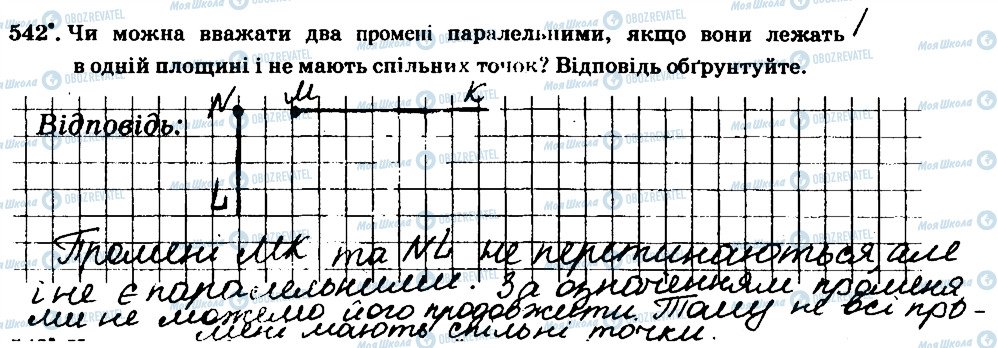 542°. Чи можна вважати два промені паралельними, якщо вони лежать
в одній площині і не мають спільних точок? Відповідь обґрунтуйте.
N M K
Відповідь:
L
Промені MK та NL не перетинаються, але
і не є паралельними. За означенням променя
ми не можемо його продовжити. Тому не всі про-
мені мають спільні точки.